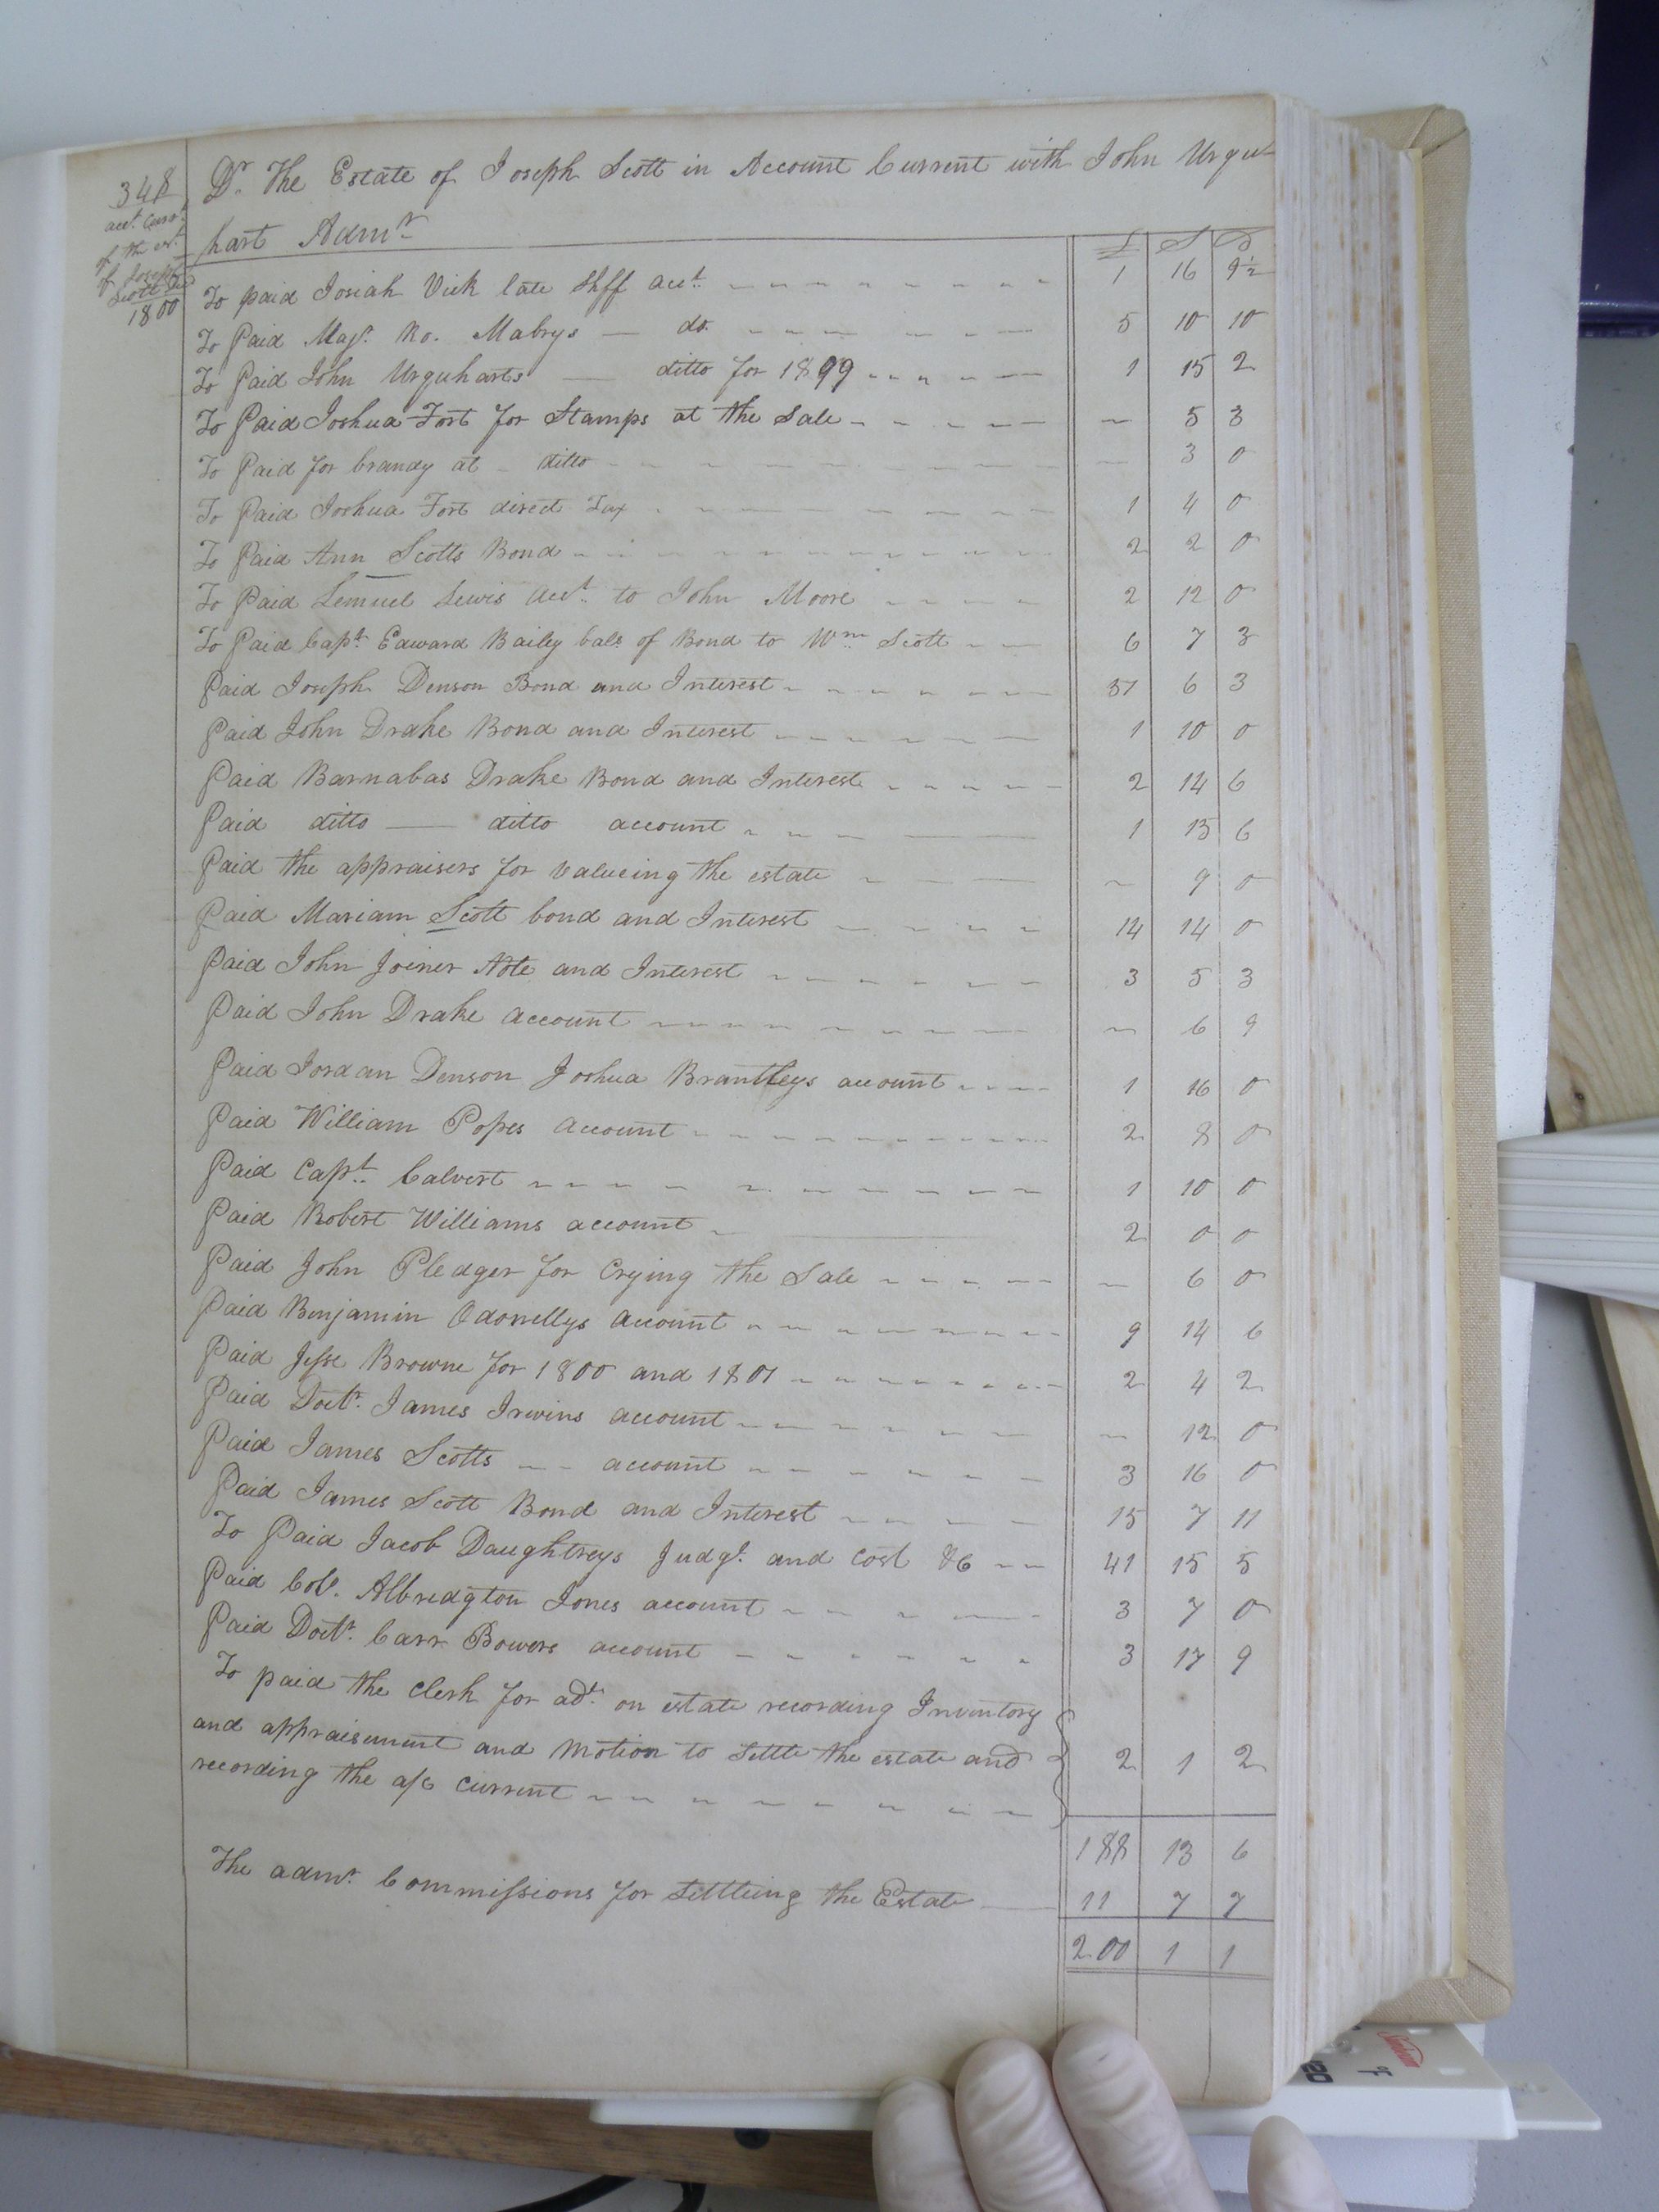 348
acct. Curnt.
of the est.
of Joseph
Scott Decd
1800
Dr. The Estate of Joseph Scott in Account Current with John Urqu
hart Admr.
£ S D
To paid Josiah Vick late Shff acct. 1 16 9½
To Paid Majr. Ro. Mabrys — do. 5 10 10
To Paid John Urquharts — ditto for 1899 1 15 2
To Paid Joshua Fort for Stamps at the Sale — 5 3
To Paid for brandy at ditto — 3 0
To Paid Joshua Fort direct Tax 1 4 0
To Paid Ann Scotts Bond 2 2 0
To Paid Lemuel Lewis acct. to John Moore 2 12 0
To Paid Capt. Edward Baily bale. of Bond to Wm. Scott 6 7 3
Paid Joseph Denson Bond and Interest 37 6 3
Paid John Drake Bond and Interest 1 10 0
Paid Barnabas Drake Bond and Interest 2 14 6
Paid ditto — ditto account 1 13 6
Paid the appraisers for valueing the estate — 9 0
Paid Mariam Scott bond and Interest 14 14 0
Paid John Joiner Note and Interest 3 5 3
Paid John Drake account — 6 9
Paid Jordan Denson Joshua Brantleys acount 1 16 0
Paid William Popes account 2 8 0
Paid Capt. Calvert 1 10 0
Paid Robert Williams account 2 0 0
Paid John Pledger for Crying the Sale — 6 0
Paid Benjamin Odonellys account 9 14 6
Paid Jesse Browne for 1800 and 1801 2 4 2
Paid Doctr. James Irwins account — 12 0
Paid James Scotts — account 3 16 0
Paid James Scott Bond and Interest 15 7 11
To Paid Jacob Daughtreys Judgt. and Cost &c 41 15 5
Paid Colo. Albredgton Jones account 3 7 0
Paid Doctr. Carr Bowers account 3 17 9
To paid the Clerk for adt. on estate recording Inventory
and appraisement and Motion to Settle the estate and 2 1 2
recording the a/c Current
188 13 6
The admr. Commissions for Settleing the Estate 11 7 7
200 1 1